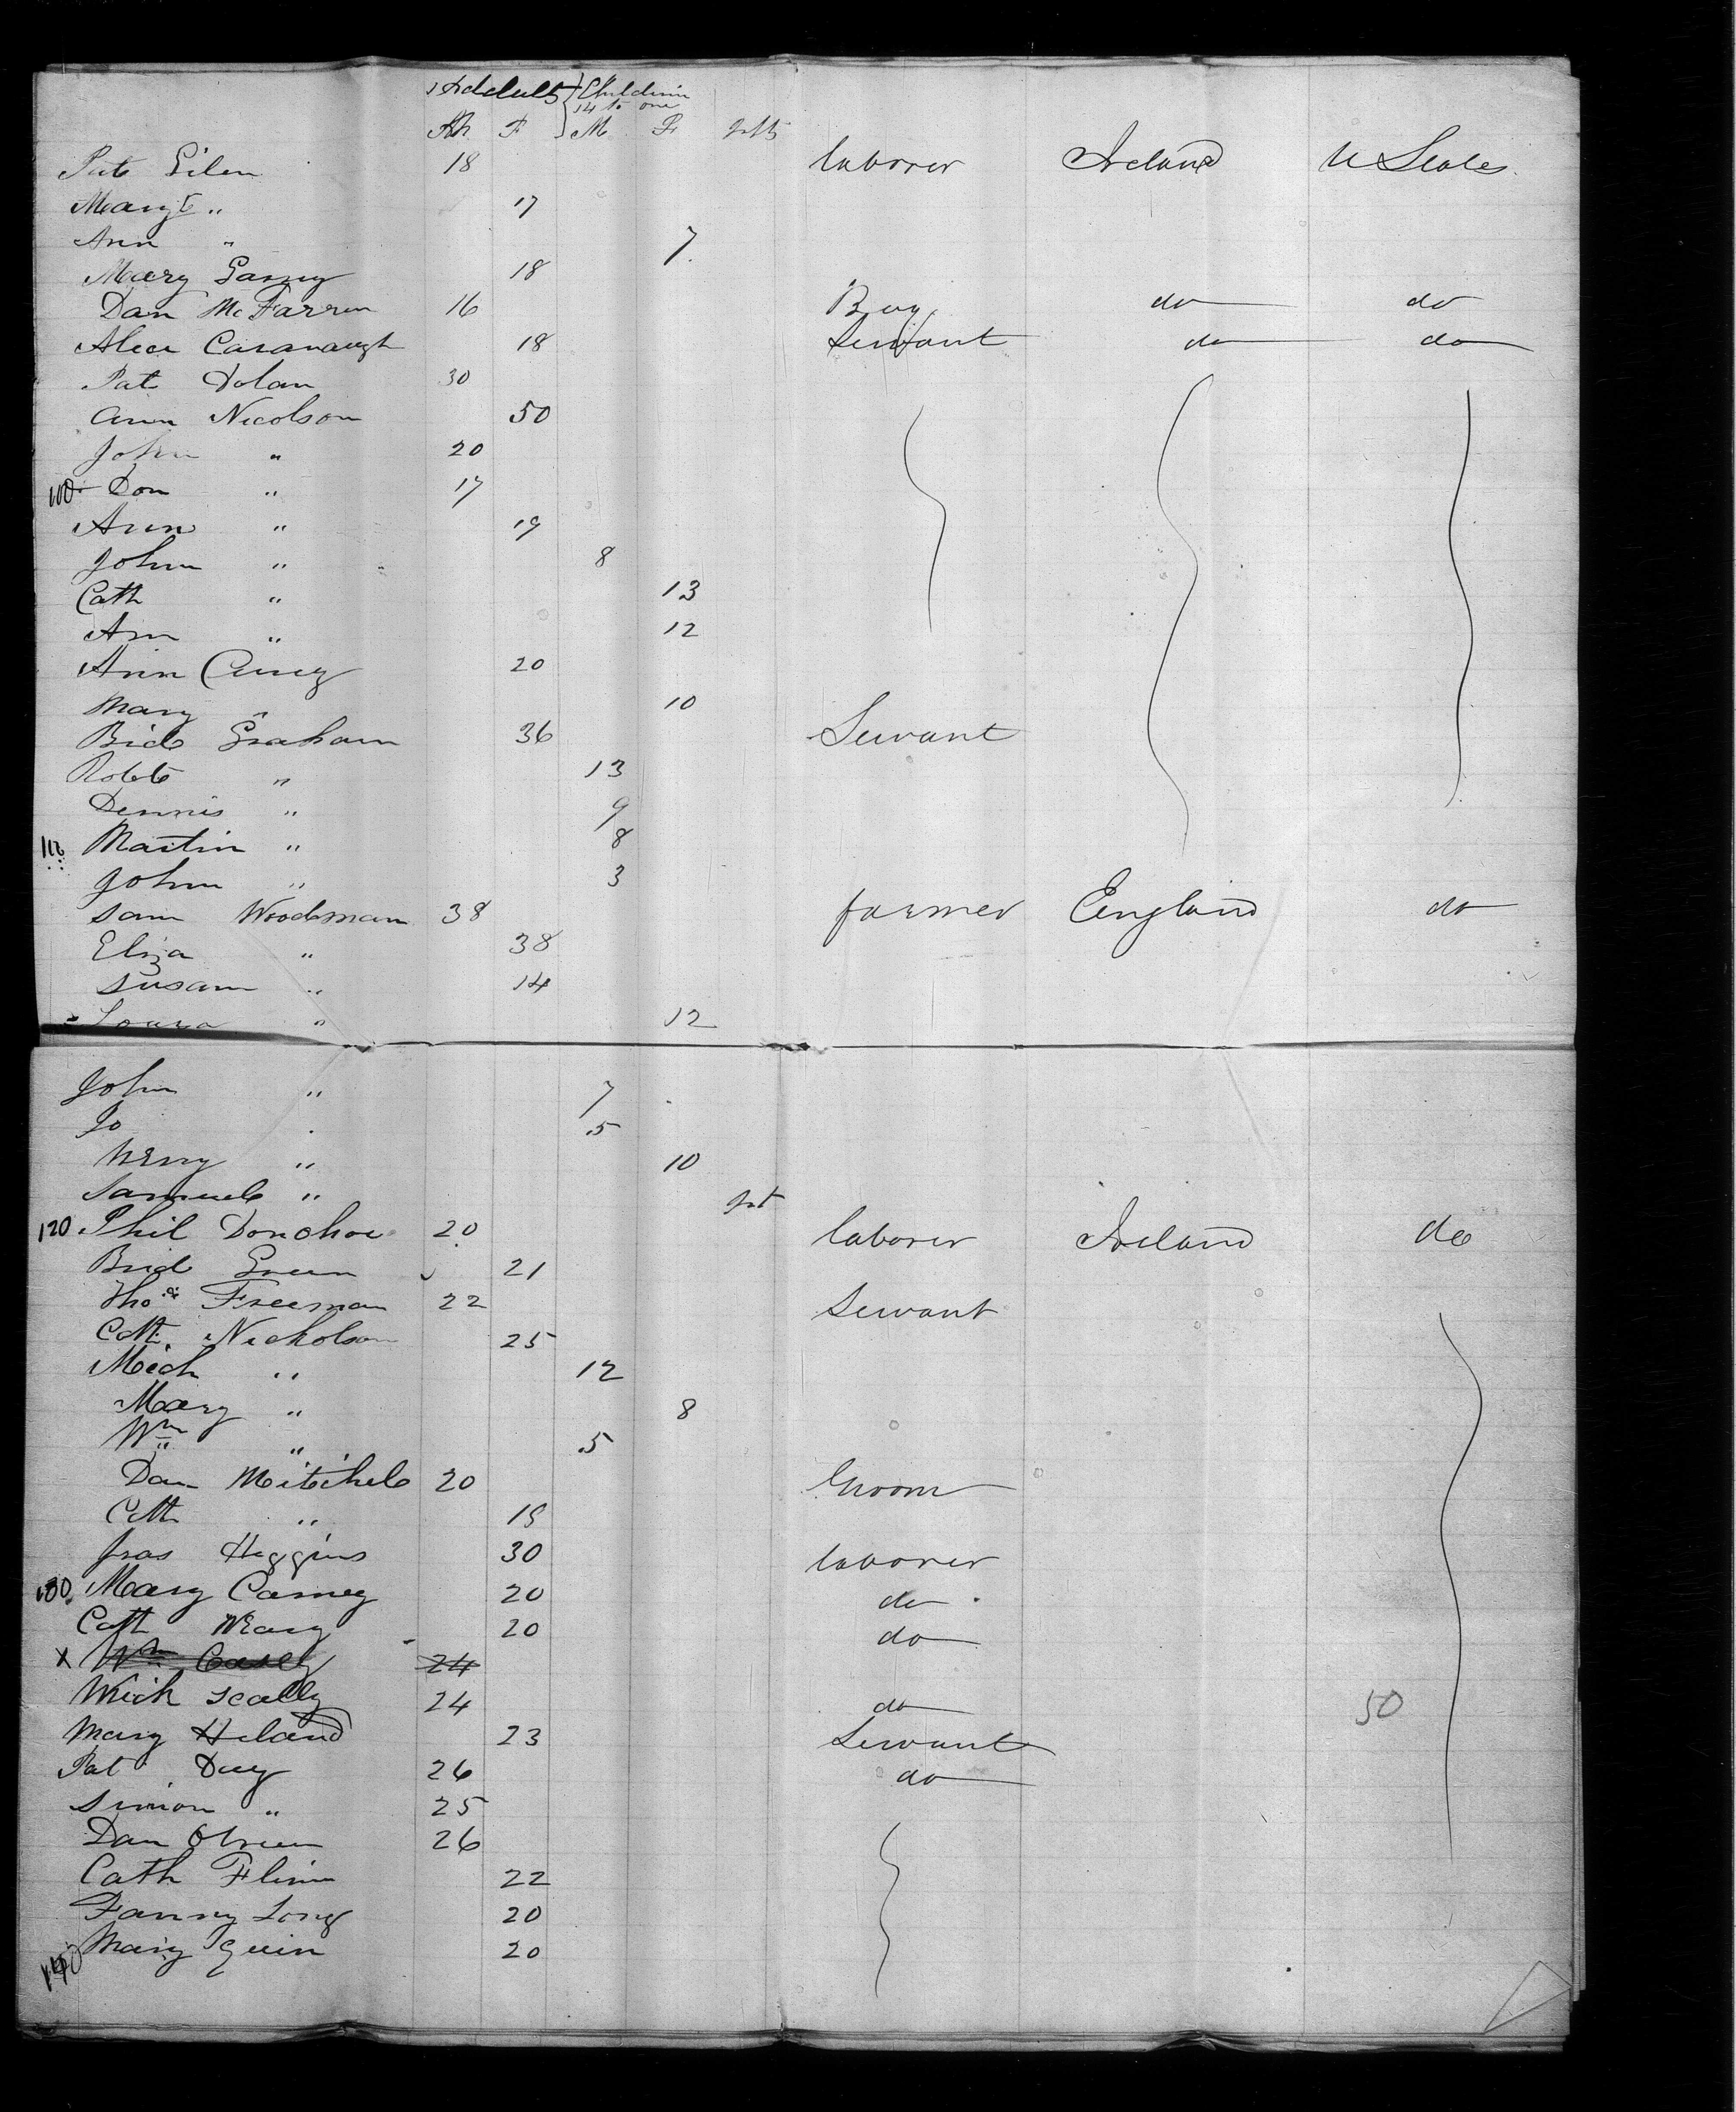 Adults Children
14 to one
M F M F Infts
Pat Gilen 18 laborer Ireland U States
Margt " 17
Ann " 7
Mary 18
Dan McFarren 16 Boy do do
Alice Cavanaugh 18 Servant do do
Pat Dolan 30
Ann Nicolson 50
John " 20
100 Dom " 17
Ann " 19
John " 8
Cath " 13
Ann " 12
Ann 20
Mary " 10
Brid Graham 36 Servant
Robt " 13
Dennis " 9
110 Martin " 8
John " 3
Sam Woodman 38 farmer England do
Eliza " 38
Susan " 14
Loura " 12
John " 7
Jo 5
10
Samuel " Inft
120 Phil Donohoe 20 laborer Ireland do
Brid Green 21
Thos Freeman 22 Servant
Cath Nicholson 25
Mich " 12
Mary " 8
Wm " 5
Dan Mitchele 20 Groom
Cath " 19
Jras Higgins 30 laborer
130 Mary Carney 20 do
Cath 20 do
X Wm Casely 24
Mich Scally 24 do 50
Mary Heland 23 Servant
Pat Duy 26 do
Simon " 25
Dan Obrien 26
Cath Flinn 22
Fanny Long 20
140 Mary Quin 20